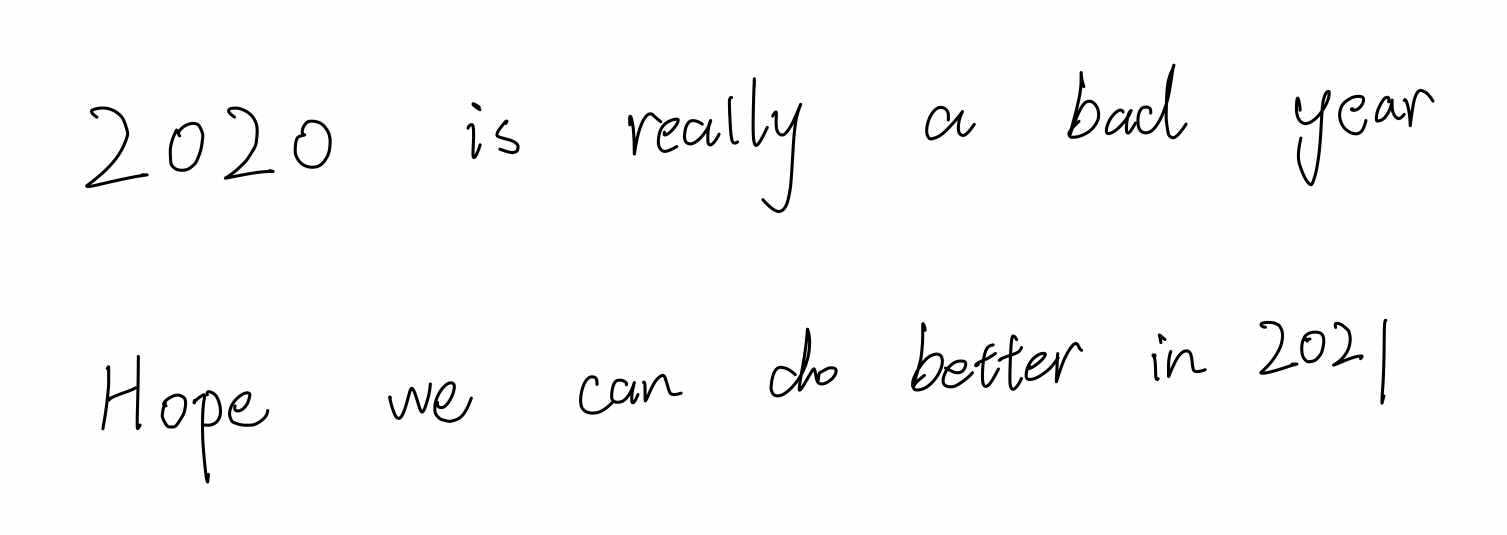 2020 is really a bad year
Hope we can do better in 2021